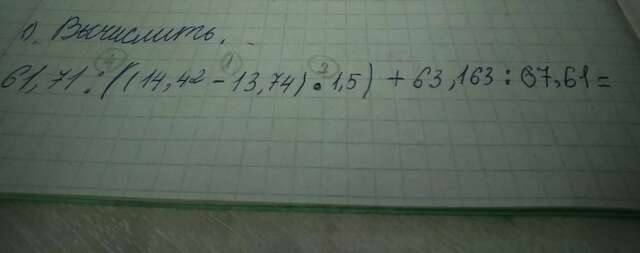 1). Вычислить.
4 1 2
61,71 : ((14,42 - 13,74) • 1,5) + 63,163 : 67,61 =